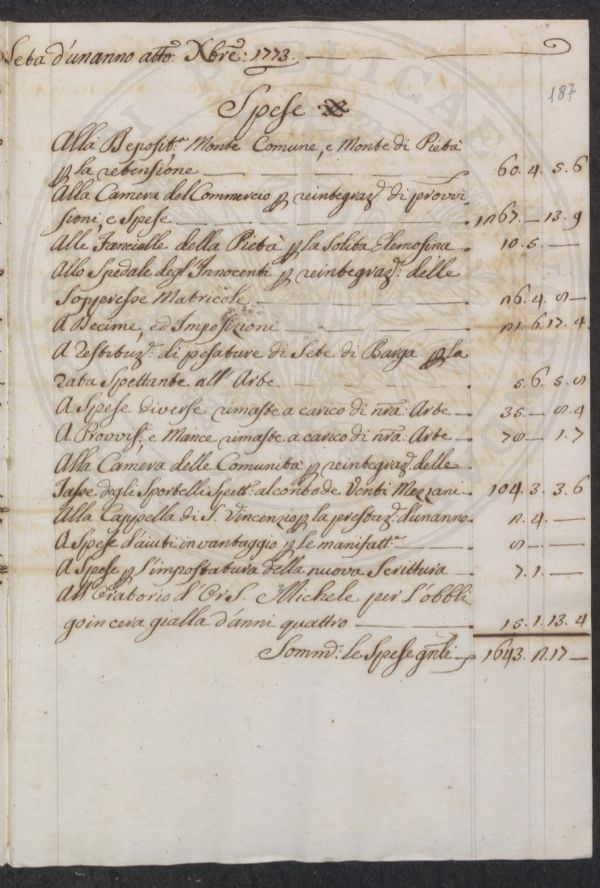 Seta d'un anno a tto: Xbre: 1773.
187
Spese
Alla Deposit.a Monte Comune, e Monte di Pietà
p la retensione 60. 4. 5. 6
Alla Camera del Commercio p reintegraz.e di provvi
sioni, e Spese 1267. — 13. 9
Alle Fanciulle della Pietà p la Solita Elemosina 10. 5. —
Allo Spedale degl'Innocenti p reintegraz.e delle
Soppresse Matricole 26. 4. 8 —
A Decime, ed Imposizioni 21. 6. 17. 4
A restituz.e di pesature di Sete di Barga p la
rata Spettante all'Arte 5. 6. 5. 8
A Spese diverse rimaste a carico di nra: Arte 35. — 8. 4
A Provvis.i e Mance rimaste a carico di nra: Arte 78 — 1. 7
Alla Camera delle Comunità p reintegraz.e delle
Tasse degli Sportelli Spett.i al conto de Venti Mezzani 104. 3. 3. 6
Alla Cappella di S. Vincenzio p la prestaz.e d'un anno 2. 4. —
A Spese d'aiuti in vantaggio p le manifatt.e 8 — —
A Spese p l'impostatura della nuova Scrittura 7. 1. —
All'Oratorio d'Or S. Michele per l'obbli
go in cera gialla d'anni quattro 15. 1. 13. 4
Somm.o le Spese gnli 1643. 2. 17 —